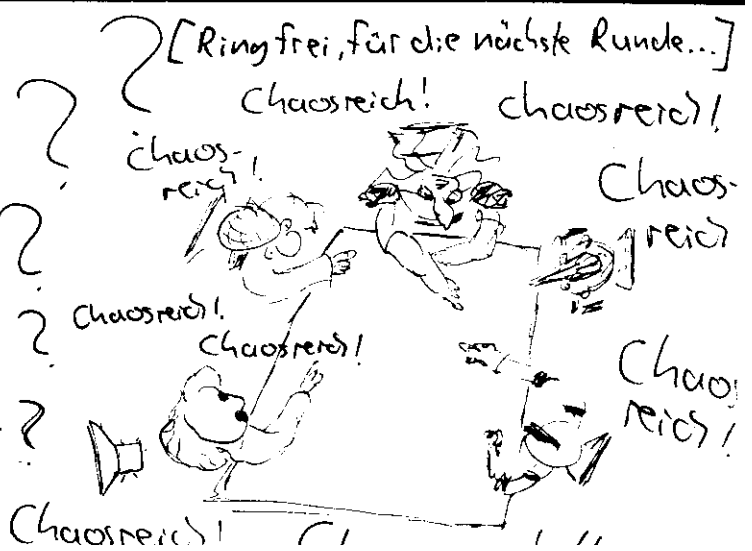 [Ring frei, für die nächste Runde...]
Chaosreich!
Chaosreich!
Chaos-
reich!
Chaos-
reich
Chaosreich!
Chaosreich!
Chaos
reich!
Chaosreich!
?
?
?
?
?